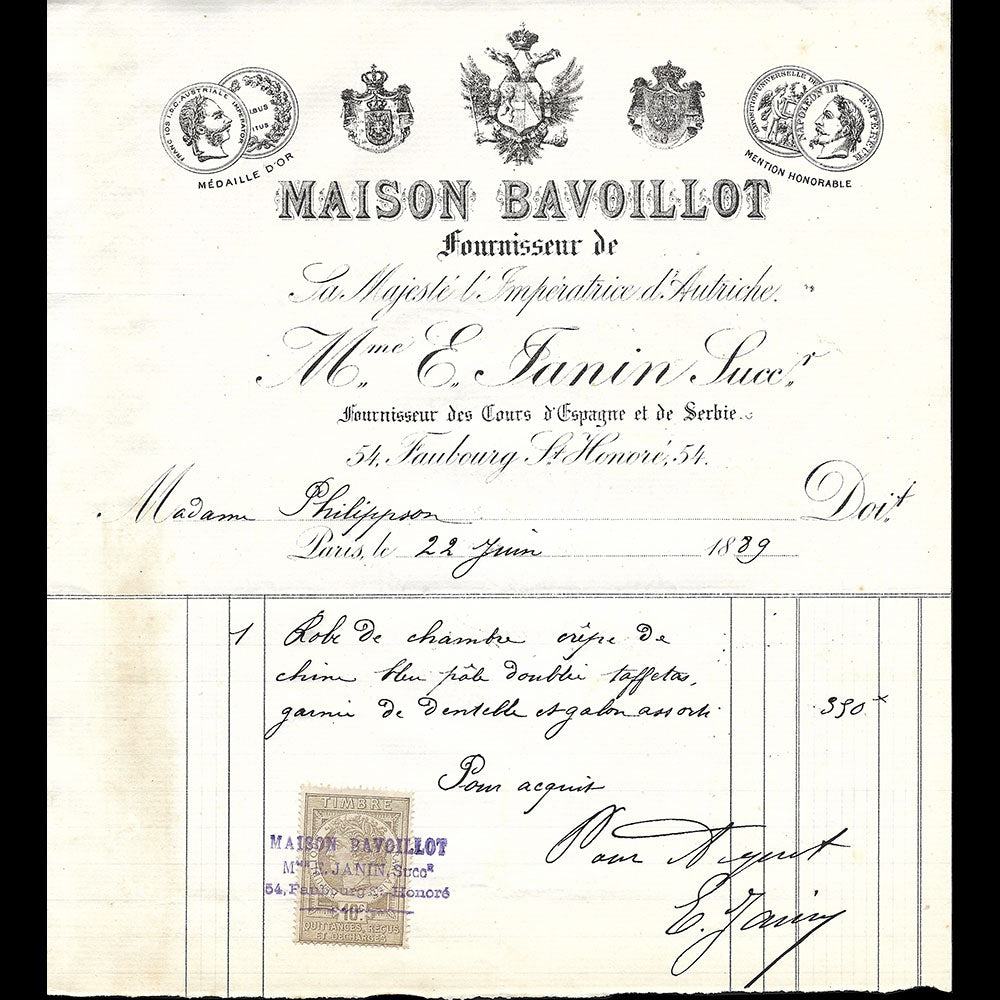 FRANC·IOS·I·S·C·AUSTRIALE IMPERATOR
MÉDAILLE D'OR
EXPOSITION UNIVERSELLE DE
NAPOLEON III EMPEREUR
MENTION HONORABLE
MAISON BAVOILLOT
Fournisseur de
Sa Majesté l'Impératrice d'Autriche.
Mme E. Janin Succr
Fournisseur des Cours d'Espagne et de Serbie.
54, Faubourg St Honoré, 54.
Madame Philippson Doit
Paris, le 22 Juin 1889
1 Robe de chambre crêpe de
chine bleu pâle doublée taffetas,
garnie de dentelle et galon assorti 350
Pour acquit
TIMBRE
MAISON BAVOILLOT
Mme E. JANIN, Succr
54, Faubourg St Honoré
10c
QUITTANCES, REÇUS
ET DÉCHARGES
E. Janin